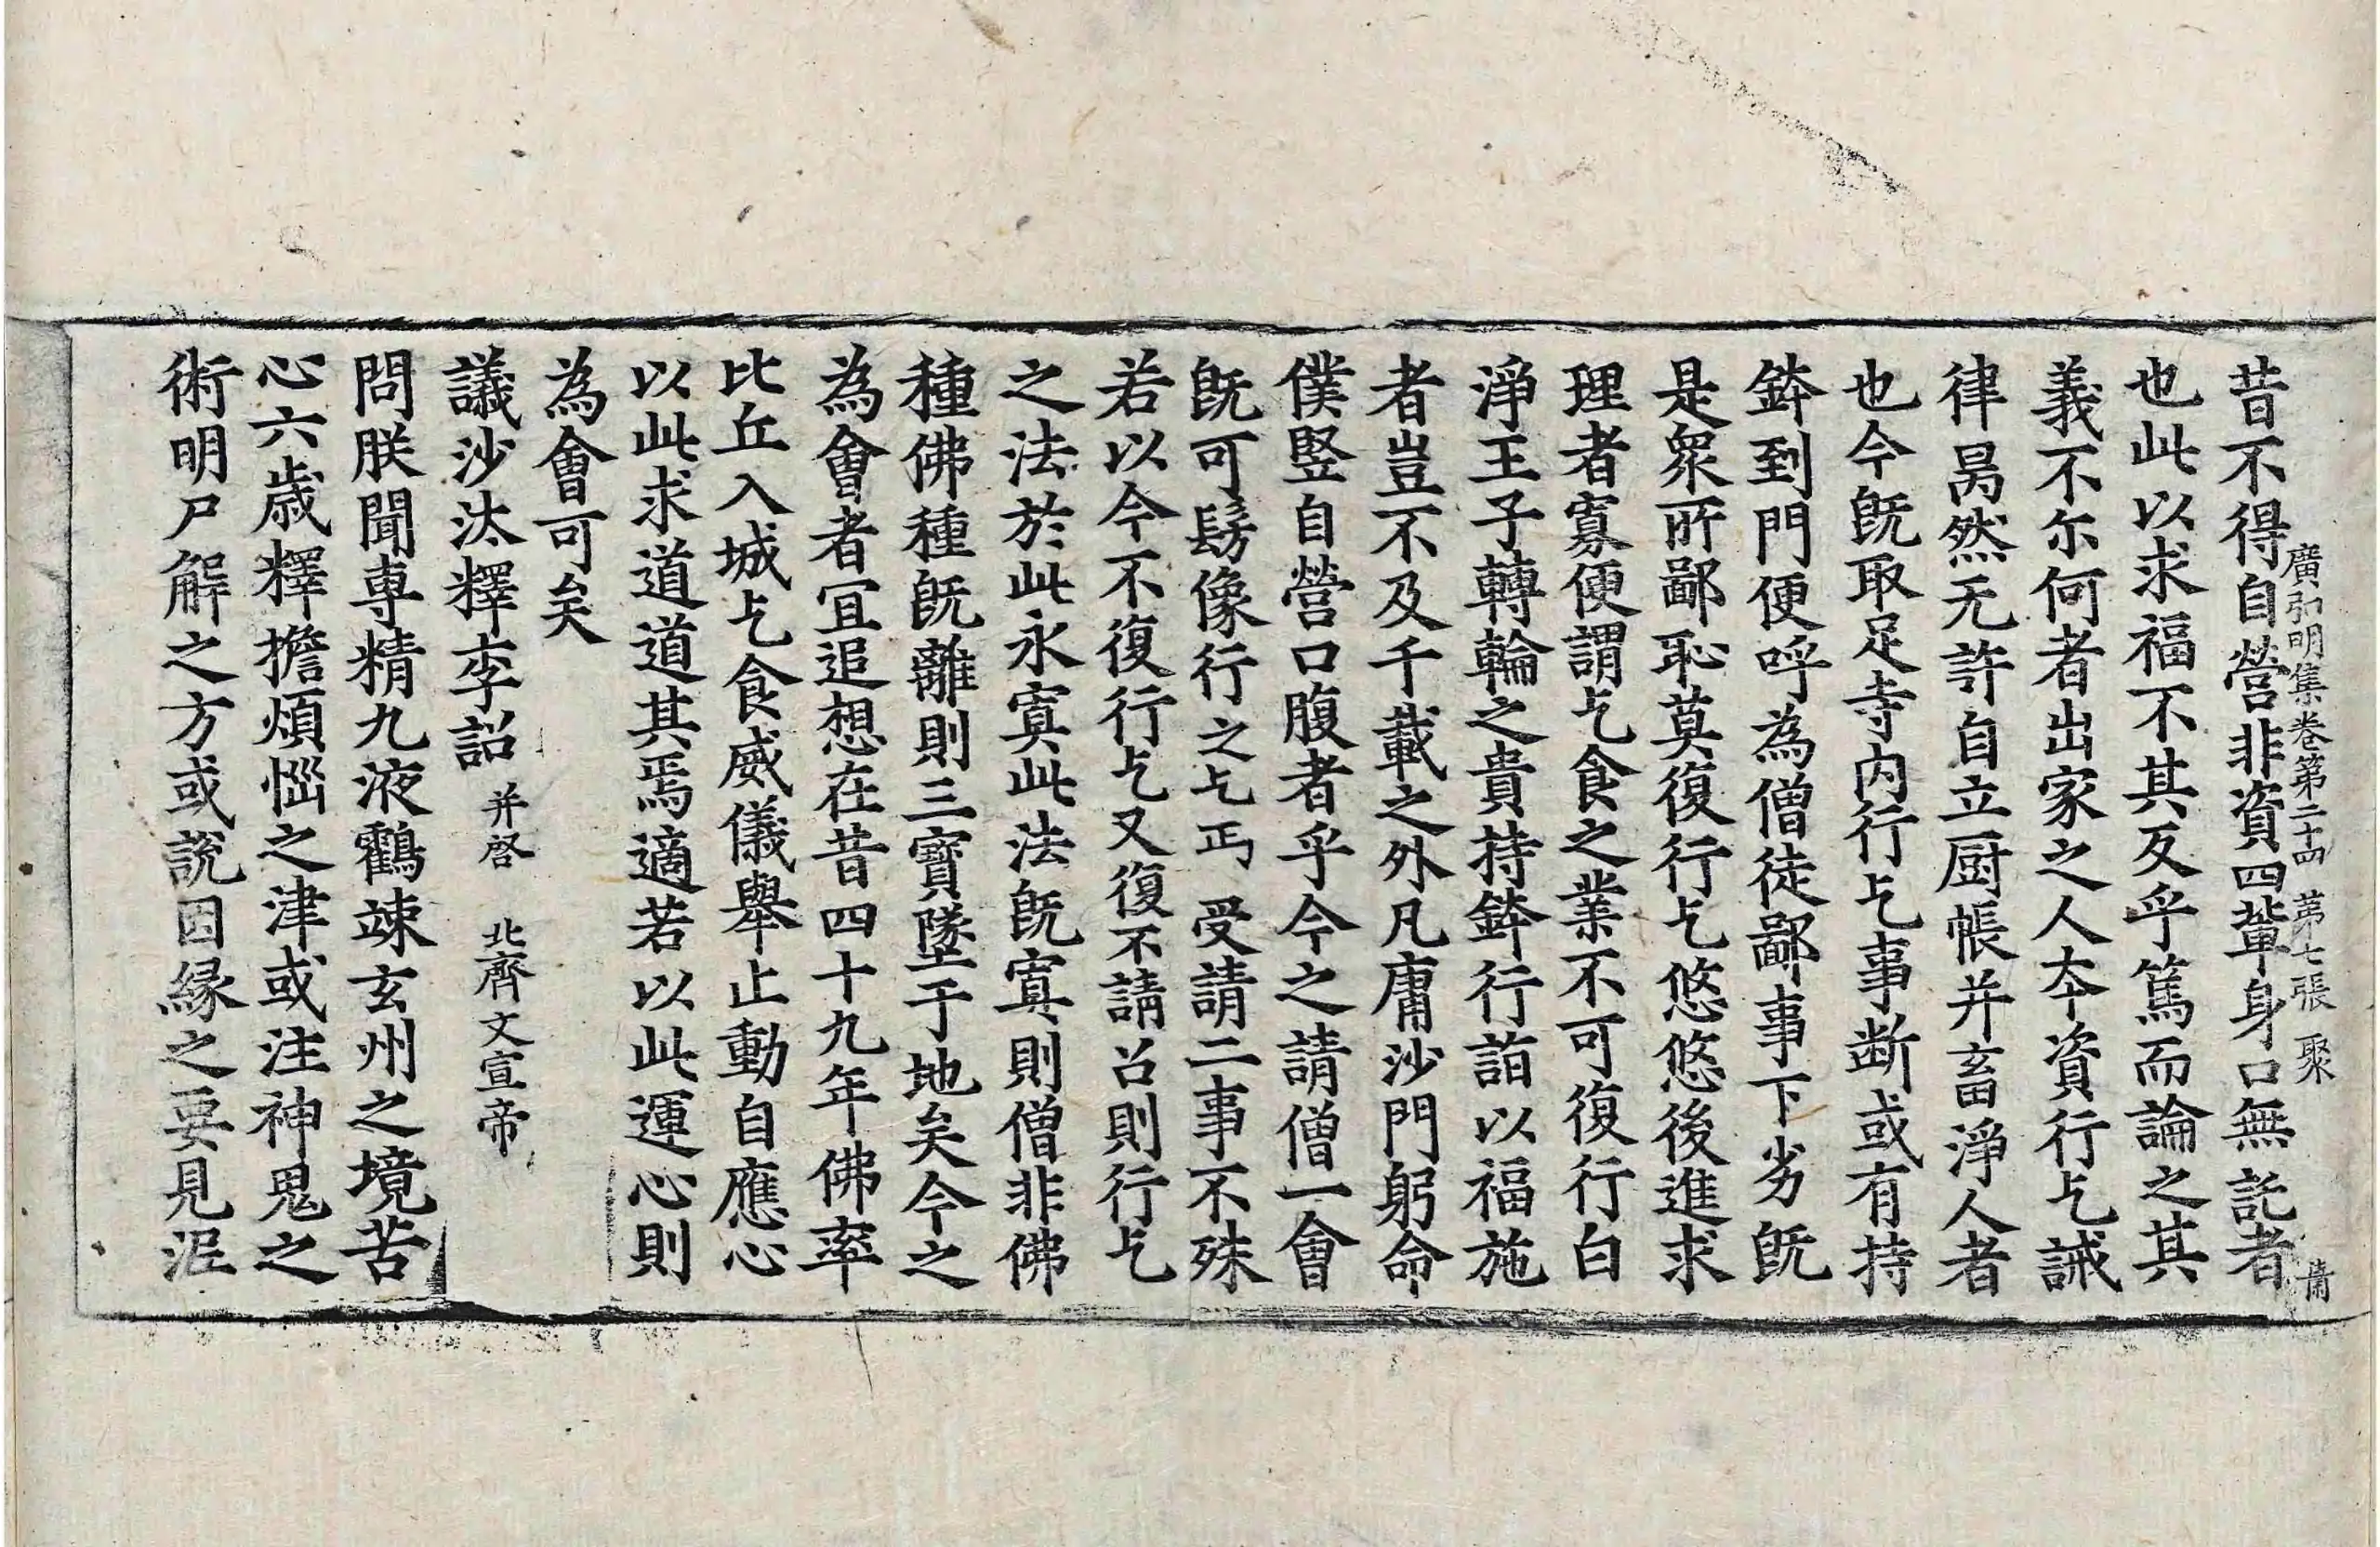 廣弘明集卷第二十四 第七張 聚
昔不得自營非資四輩身口無託者
也此以求福不其反乎篤而論之其
義不尔何者出家之人夲資行乞誡
律昺然无許自立厨帳并畜淨人者
也今旣取足寺内行乞事断或有持
鉢到門便呼為僧徒鄙事下劣旣
是衆所鄙恥莫復行乞悠悠後進求
理者寡便謂乞食之業不可復行白
淨王子轉輪之貴持鉢行詣以福施
者豈不及千載之外凡庸沙門躬命
僕竪自營口腹者乎今之請僧一會
旣可髣像行之乞丐受請二事不殊
若以今不復行乞又復不請召則行乞
之法於此永寘此法旣寘則僧非佛
種佛種旣離則三寶墜于地矣今之
為會者宜追想在昔四十九年佛率
比丘入城乞食威儀舉止動自應心
以此求道道其焉適若以此運心則
為會可矣
議沙汰釋李詔 并啓 北齊文宣帝
問朕聞専精九液鸖竦玄州之境苦
心六歲釋擔煩惱之津或注神鬼之
術明尸解之方或說因緣之要見泥